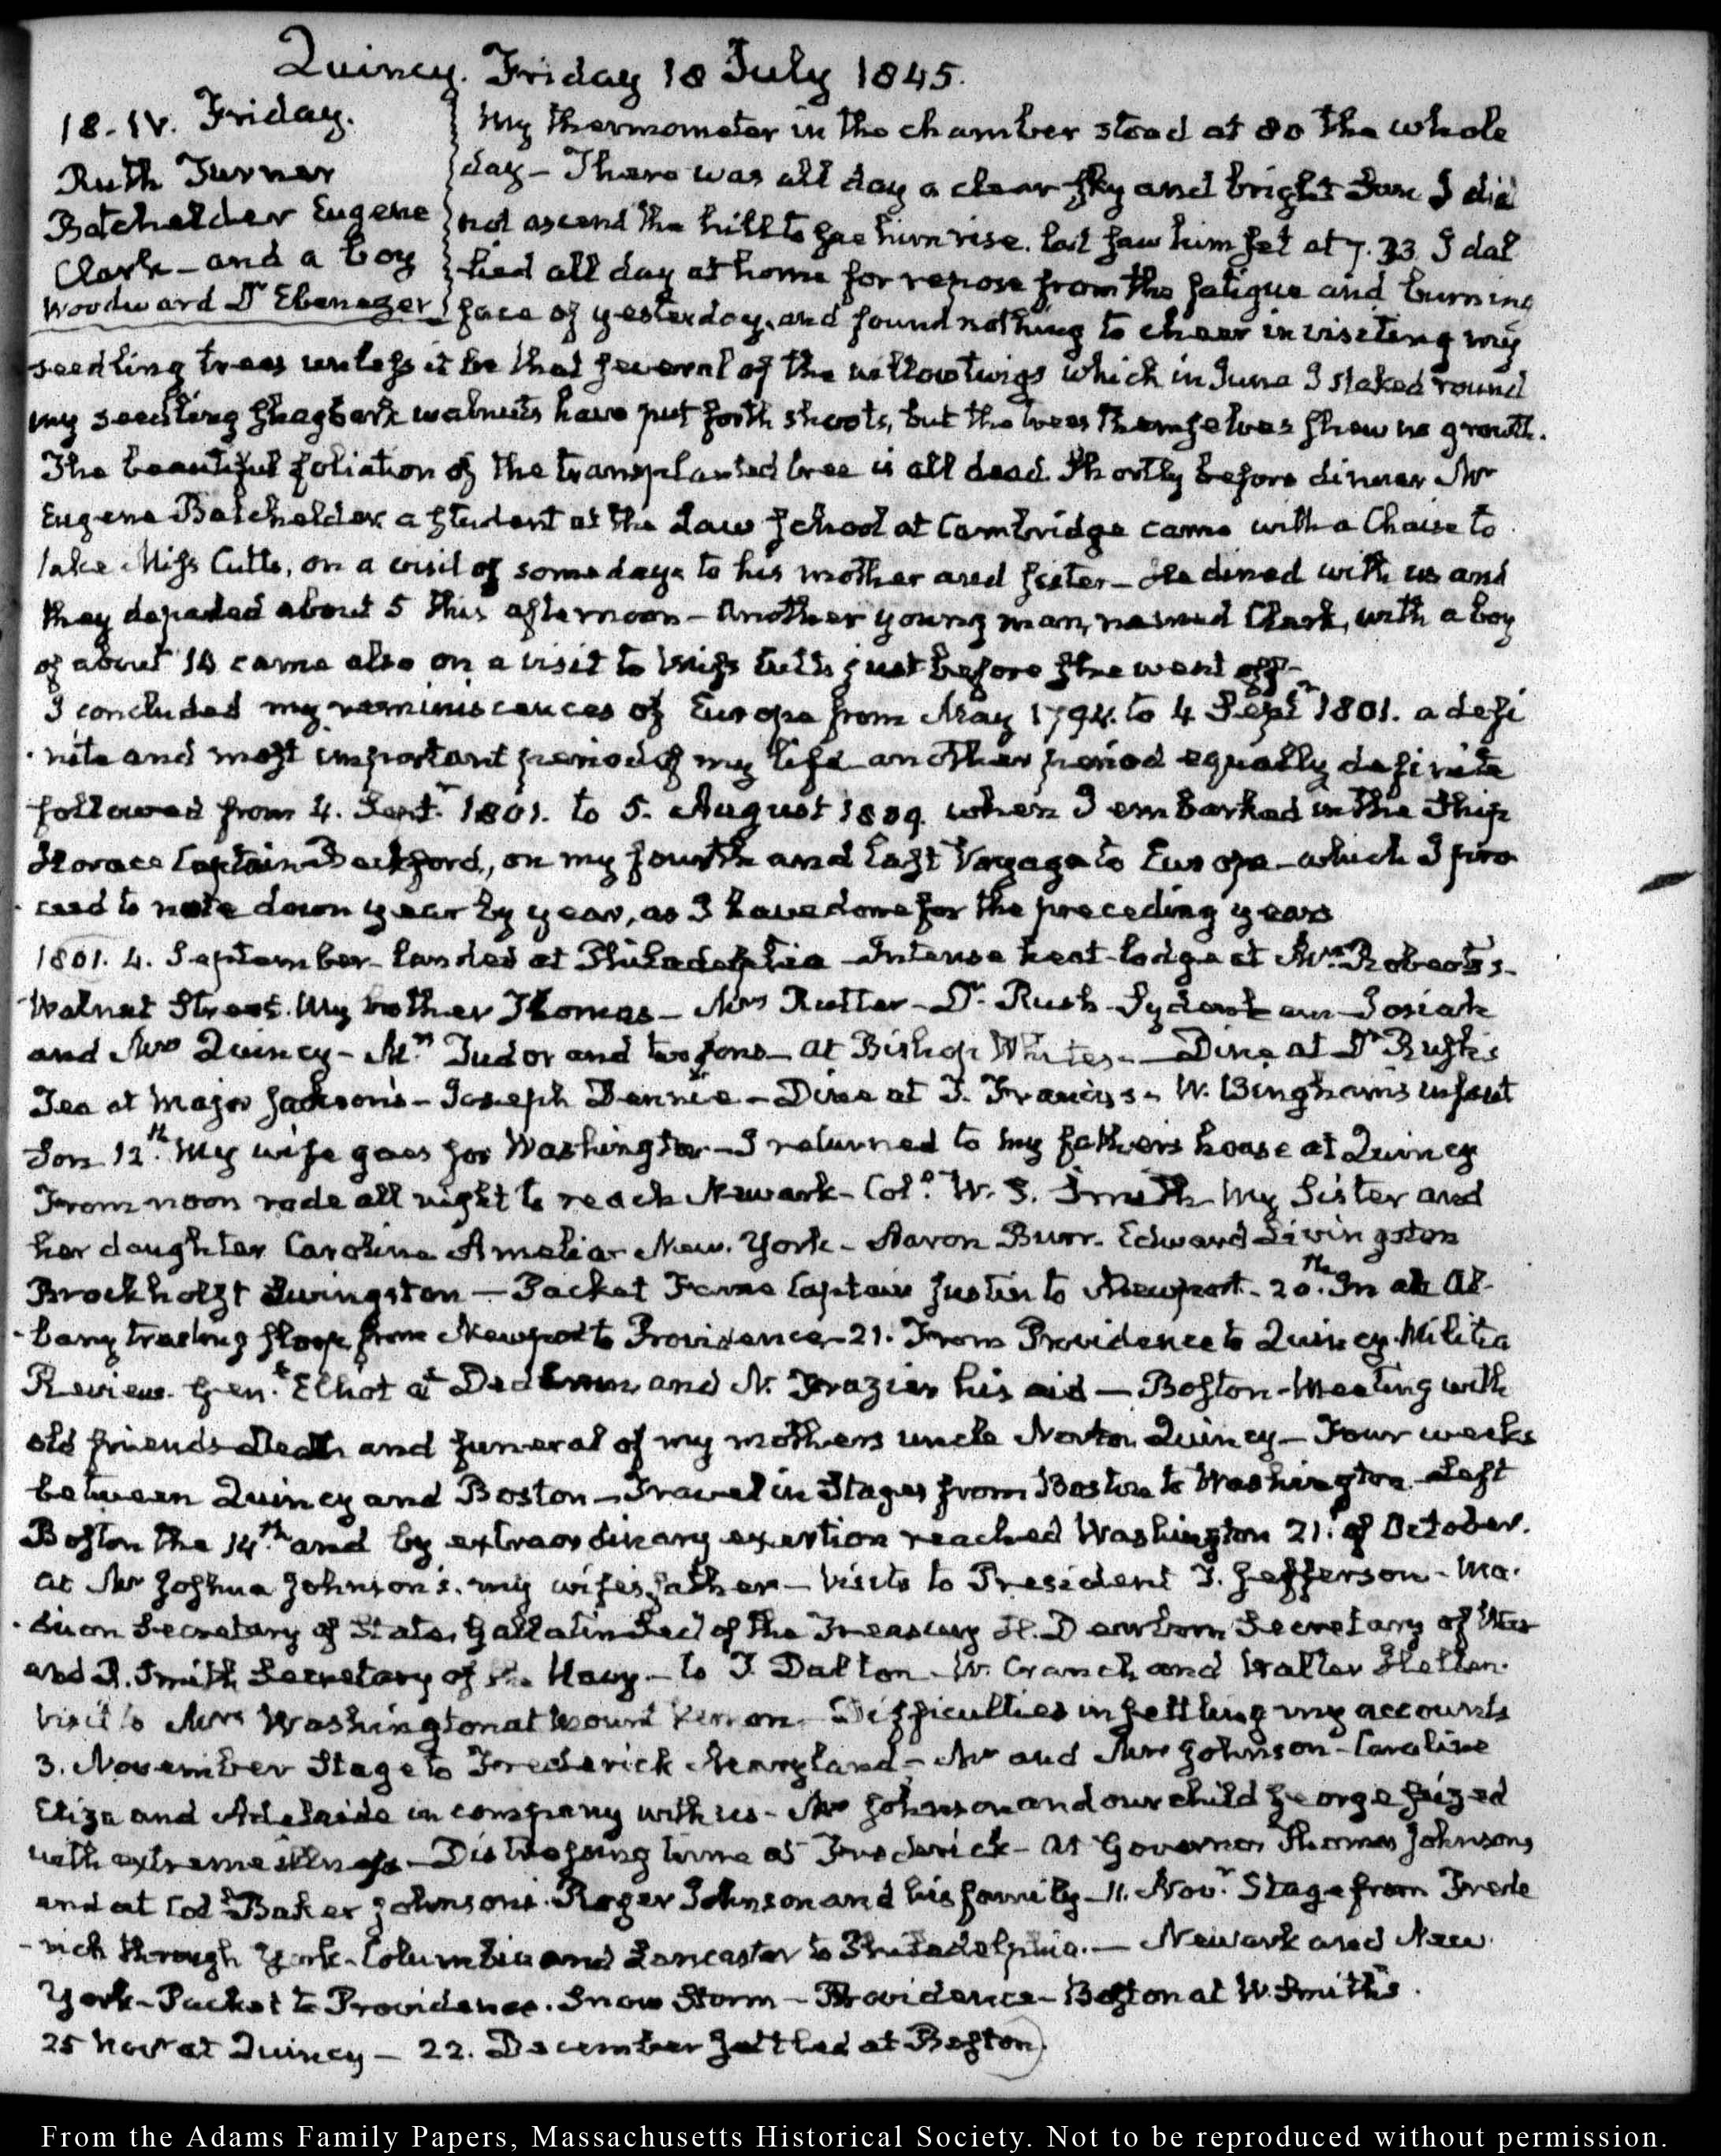 Quincy. Friday 18 July 1845.
18. IV. Friday.
Ruth Turner
Batchelder Eugene
Clark – and a boy
Woodward Dr Ebenezer
My thermometer in the chamber stood at 80 the whole
day – There was all day a clear sky and bright Sun I did
not ascend the hill to see him rise. but saw him set at 7.33. I dal
lied all day at home for repose from the fatigue and burning
face of yesterday, and found nothing to cheer in visiting my
seedling trees unless it be that several of the willow twigs which in June I staked round
my seedling shagbark walnuts have put forth shoots, but the trees themselves shew no growth.
The beautiful foliation of the transplanted tree is all dead. Shortly before dinner Mr
Eugene Batchelder a student at the Law School at Cambridge came with a Chaise to
take Miss Cutts, on a visit of some days to his mother and sister – He dined with us and
they departed about 5 this afternoon – Another young man, named Clark, with a boy
of about 14 came also on a visit to Miss Cutts just before she went off –
I concluded my reminiscences of Europe from May 1794. to 4 Septr 1801. a defi
-nite and most important period of my life another period equally definite
followed from 4. Septr 1801. to 5. August 1809. when I embarked in the Ship
Horace Captain Beckford, on my fourth and last Voyage to Europe – which I pro
-ceed to note down year by year, as I have done for the preceding years
1801. 4. September – landed at Philadelphia – Intense heat – lodge at Mrs Roberts's –
Walnut Street. My brother Thomas – Mrs Rutter – Dr Rush – Josiah
and Mrs Quincy – Mrs Tudor and two sons – at Bishop White's – Dine at Dr Rush's
Tea at Major Jackson's – Joseph Dennie – Dine at T. Francis's – W. Bingham's infant
Son 12th. My wife goes for Washington – I returned to my father's house at Quincy
From noon rode all night to reach Newark – Colo. W. S. Smith – My Sister and
her daughter Caroline Amelia – New. York – Aaron Burr. Edward Livingston
Brockholst Livingston – Packet Fame Captain Justin to Newport – 20th. In an Al-
-bany trading sloop from Newport to Providence – 21. From Providence to Quincy. Militia
Review. Genl. Elliot at Dedham, and N. Frazier his aid – Boston – Meeting with
old friends – Death and funeral of my mothers uncle Norton Quincy – Four weeks
between Quincy and Boston – Travel in Stages from Boston to Washington – Left
Boston the 14th and by extraordinary exertion reached Washington 21. of October.
at Mr Joshua Johnson's. my wife's father – Visits to President T. Jefferson – Ma-
-dison Secretary of State, Gallatin Secy of the Treasury H. Dearborn Secretary of War
and R. Smith Secretary of the Navy – to T. Dalton – W. Cranch and Walter Hellen.
Visit to Mrs Washington at Mount Vernon. Difficulties in settling my accounts
3. November Stage to Frederick Maryland – Mr and Mrs Johnson – Caroline
Eliza and Adelaide in company with us – Mr Johnson and our child George seized
with extreme illness – Distressing time at Frederick – at Governor Thomas Johnsons
and at Col. Baker Johnsons. Roger Johnson and his family – 11. Novr. Stage from Frede
-rick through York – Columbia and Lancaster to Philadelphia. – Newark and New
York – Packet to Providence. Snow Storm – Providence – Boston at W. Smith's.
25 Novr at Quincy – 22. December settled at Boston.
From the Adams Family Papers, Massachusetts Historical Society. Not to be reproduced without permission.